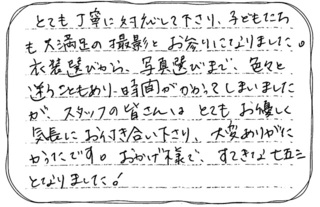 とても丁寧に対応して下さり、子どもたち
も大満足の撮影とお参りになりました。
衣装選びから、写真選びまで、色々と
迷うこともあり、時間がかかってしまいました
が、スタッフの皆さんは とても お優しく
気長にお付き合い下さり、大変ありがた
かったです。おかげ様で、すてきな七五三
となりました!